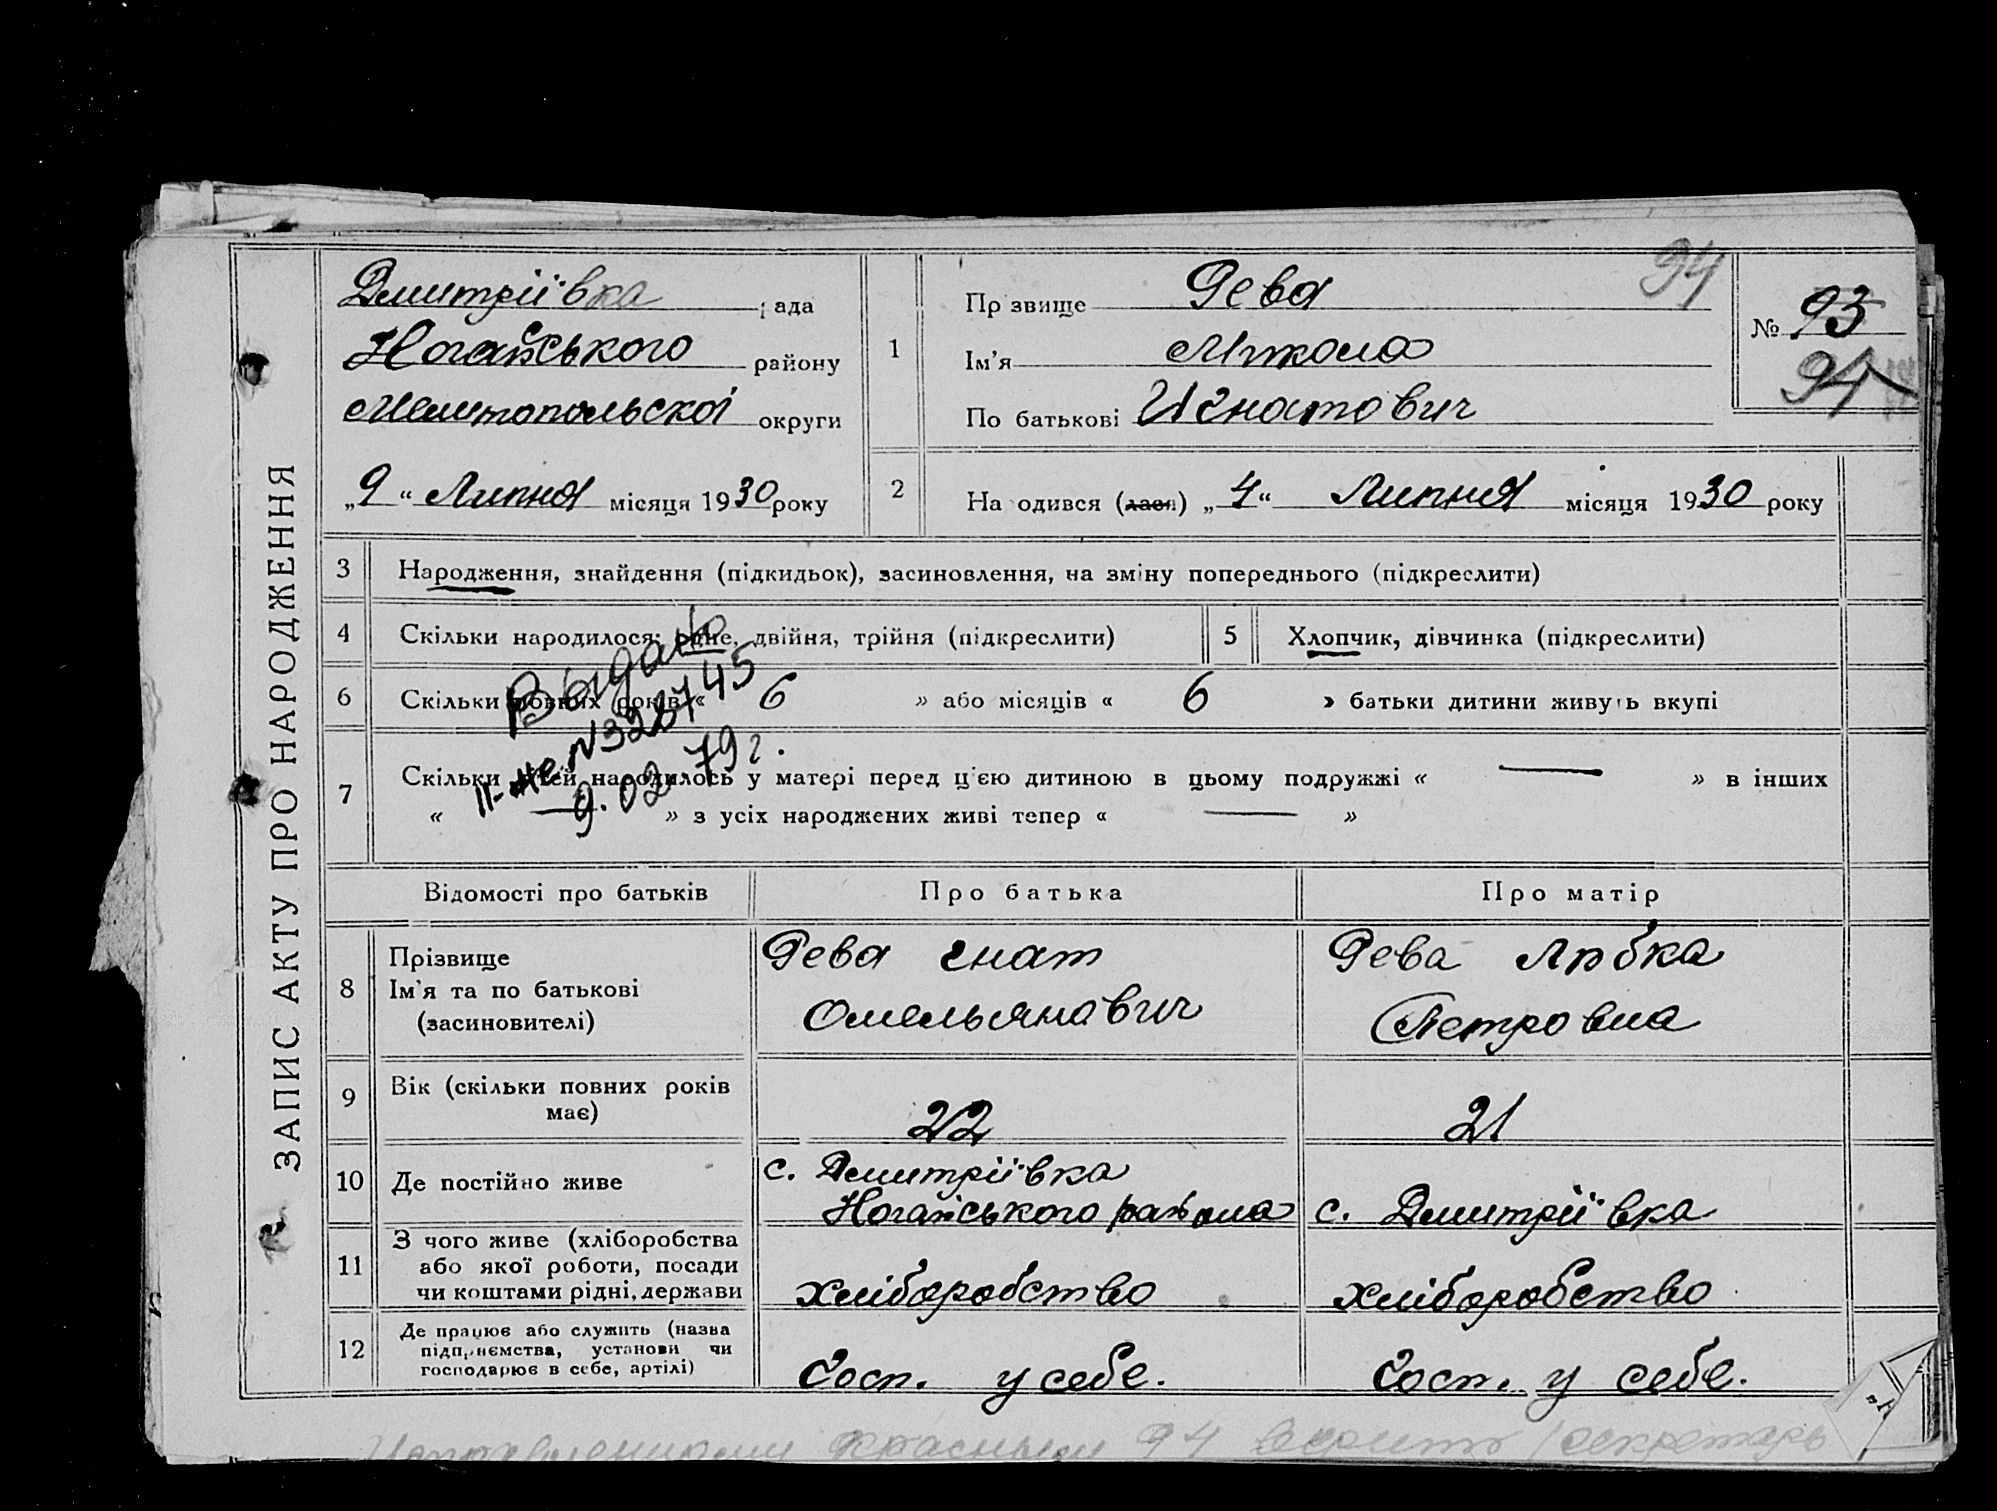 ЗАПИС АКТУ ПРО НАРОДЖЕННЯ
Дмитріївка рада
Ногайського району
Мелитопольскоі округи
„9“ Липня місяця 1930 року
1
Прізвище Рева
Ім’я Микола
По батькові Игнатович
94
№ 93
94
2
Народився (лася) „4“ Липня місяця 1930 року
3 Народження, знайдення (підкидьок), засиновлення, на зміну попереднього (підкреслити)
4 Скільки народилося: одне, двійня, трійня (підкреслити)
5 Хлопчик, дівчинка (підкреслити)
6 Скільки повних років « 6 » або місяців « 6 » батьки дитини живуть вкупі
7 Скільки дітей народилось у матері перед ц’єю дитиною в цьому подружжі « — » в інших
« — » з усіх народжених живі тепер « — »
Выдано
II-же N 328745
9.02 79 г.
Відомості про батьків
Про батька
Про матір
8 Прізвище
Ім’я та по батькові
(засиновителі)
Рева Гнат
Омельянович
Рева
Петровна
9 Вік (скільки повних років
має)
22
21
10 Де постійно живе
с. Дмитріївка
Ногайського району
с. Дмитріївка
11 З чого живе (хліборобства
або якої роботи, посади
чи коштами рідні, держави
хліборобство
хліборобство
12 Де працює або служить (назва
підприємства, установи чи
господарює в себе, артілі)
Госп. у себе.
Госп. у себе.
94 верить / секретарь